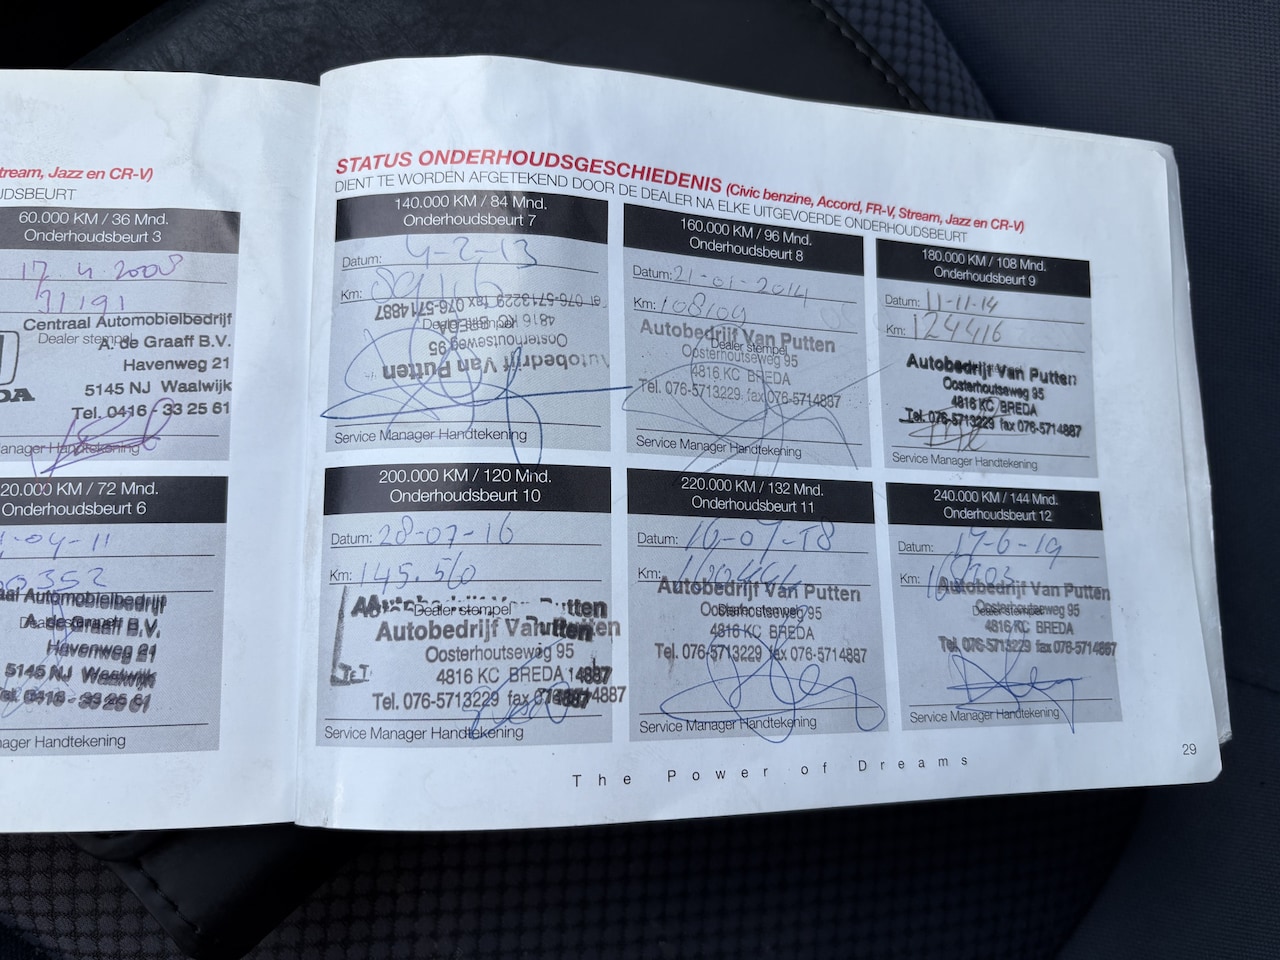 tream, Jazz en CR-V)
UDSBEURT
60.000 KM / 36 Mnd.
Onderhoudsbeurt 3
17.4.2008
31191
Centraal Automobielbedrijf
Dealer stempel
A. de Graaff B.V.
Havenweg 21
5145 NJ Waalwijk
Tel. 0416 - 33 25 61
DA
anager Handtekening
20.000 KM / 72 Mnd.
Onderhoudsbeurt 6
-04-11
352
aal Automobielbedrijf
A. de Graaff B.V.
Havenweg 21
5145 NJ Waalwijk
el. 0416 - 33 25 61
nager Handtekening
STATUS ONDERHOUDSGESCHIEDENIS (Civic benzine, Accord, FR-V, Stream, Jazz en CR-V)
DIENT TE WORDEN AFGETEKEND DOOR DE DEALER NA ELKE UITGEVOERDE ONDERHOUDSBEURT
140.000 KM / 84 Mnd.
Onderhoudsbeurt 7
Datum: 4-2-13
Km:
Dealer stempel
Autobedrijf Van Putten
Oosterhoutseweg 95
4816 KC BREDA
076-5713229 fax 076-5714887
Service Manager Handtekening
160.000 KM / 96 Mnd.
Onderhoudsbeurt 8
Datum: 21-01-2014
Km: 108109
Autobedrijf Van Putten
Dealer stempel
Oosterhoutseweg 95
4816 KC BREDA
Tel. 076-5713229 fax 076-5714887
Service Manager Handtekening
180.000 KM / 108 Mnd.
Onderhoudsbeurt 9
Datum: 11-11-14
Km: 124416
Autobedrijf Van Putten
Oosterhoutseweg 95
4816 KC BREDA
Tel. 076-5713229 fax 076-5714887
Service Manager Handtekening
200.000 KM / 120 Mnd.
Onderhoudsbeurt 10
Datum: 28-07-16
Km: 145.560
Dealer stempel
Autobedrijf Van Putten
Oosterhoutseweg 95
4816 KC BREDA 14887
Tel. 076-5713229 fax 4887
Service Manager Handtekening
220.000 KM / 132 Mnd.
Onderhoudsbeurt 11
Datum: 16-07-18
Km:
Autobedrijf Van Putten
Oosterhoutseweg 95
4816 KC BREDA
Tel. 076-5713229 fax 076-5714887
Service Manager Handtekening
240.000 KM / 144 Mnd.
Onderhoudsbeurt 12
Datum: 17-6-19
Km:
Autobedrijf Van Putten
Dealer stempel
Oosterhoutseweg 95
4816 KC BREDA
Tel. 076-5713229 fax 076-5714887
Service Manager Handtekening
The Power of Dreams
29